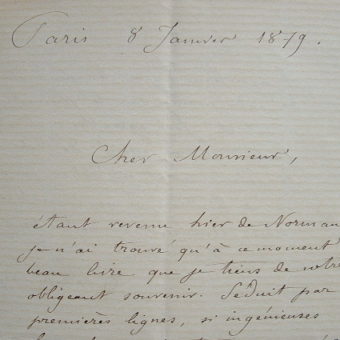 Paris 8 Janvier 1879.
Cher Monsieur,
étant revenu hier de Norman
je n'ai trouvé qu'à ce moment
beau livre que je tiens de votre
obligeant souvenir. Séduit par
premières lignes, si ingénieuses